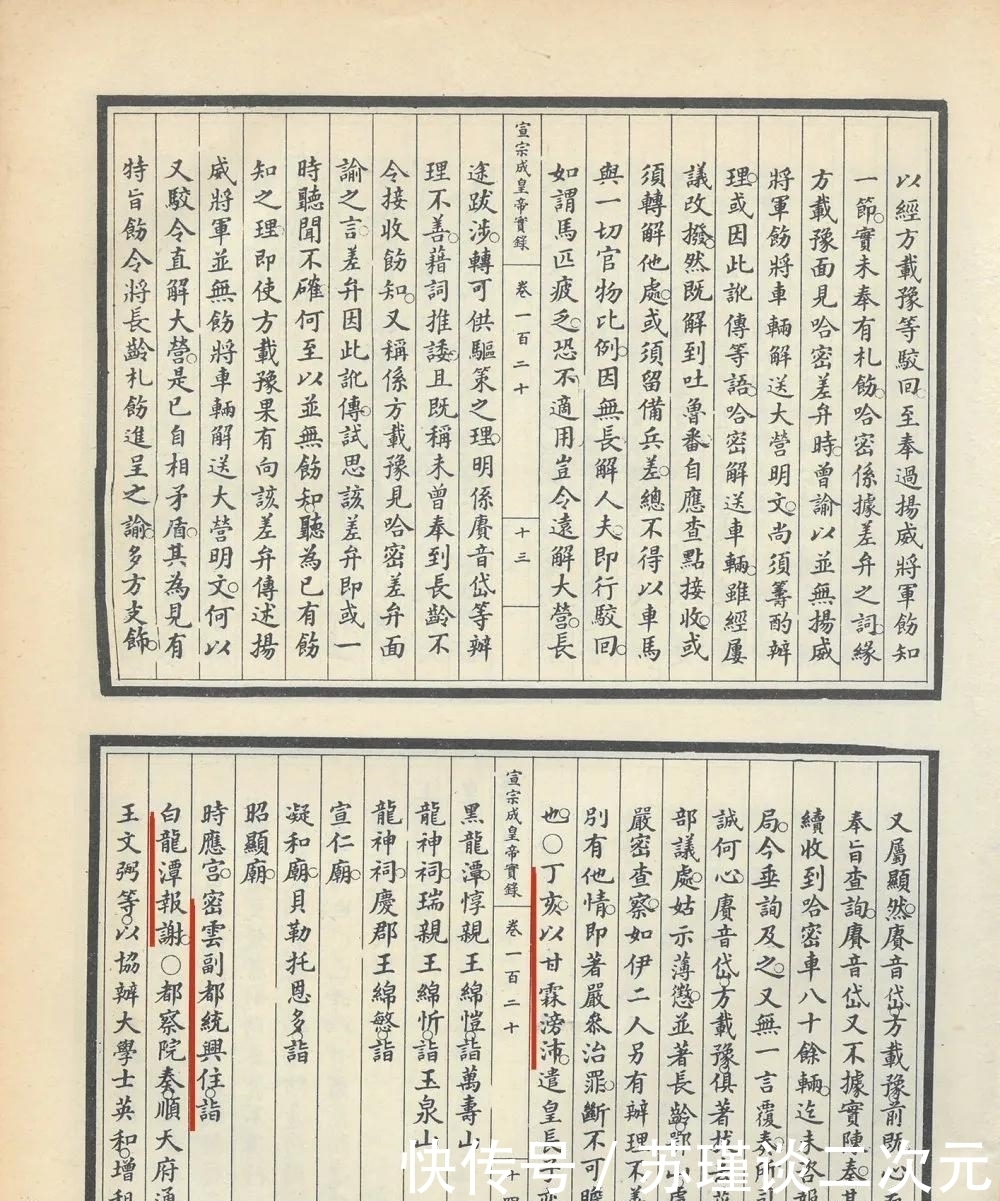 以經方載豫等駁回。至奉過揚威將軍飭知
一節。實未奉有札飭。哈密係據差弁之詞。緣
方載豫面見哈密差弁時。曾諭以並無揚威
將軍飭將車輛解送大營明文。尚須籌酌辦
理。或因此訛傳等語。哈密解送車輛。雖經屢
議改撥。然既解到吐魯番。自應查點接收。或
須轉解他處。或須留備兵差。總不得以車馬
與一切官物比例。因無長解人夫。即行駁回。
如謂馬匹疲乏。恐不適用。豈令遠解大營。長
宣宗成皇帝實錄 卷一百二十 十三
途跋涉。轉可供驅策之理。明係賡音岱等辦
理不善。藉詞推諉。且既稱未曾奉到長齡不
令接收飭知。又稱係方載豫見哈密差弁面
諭之言。差弁因此訛傳。試思該差弁即或一
時聽聞不確。何至以並無飭知。聽為已有飭
知之理。即使方載豫果有向該差弁傳述揚
威將軍並無飭將車輛解送大營明文。何以
又駁令直解大營。是已自相矛盾。其為見有
特旨飭令將長齡札飭進呈之諭。多方支飾。
又屬顯然。賡音岱。方載豫前
奉旨查詢。賡音岱又不據實陳奏。
續收到哈密車八十餘輛。迄未咨
局。今垂詢及之。又無一言覆奏。所
誠何心。賡音岱。方載豫。俱著
部議處。姑示薄懲。並著長齡。鄂山
嚴密查察。如伊二人另有辦理不
別有他情。即著嚴參治罪。斷不可
也。○丁亥。以甘霖滂沛。遣皇長
宣宗成皇帝實錄 卷一百二十 十四
黑龍潭。惇親王綿愷詣萬壽山
龍神祠。瑞親王綿忻。詣玉泉山
龍神祠。慶郡王綿慜詣
宣仁廟。
凝和廟。貝勒托恩多。詣
昭顯廟。
時應宮。密雲副都統興住。詣
白龍潭報謝。○都察院奏。順天府
王文弼等。以協辦大學士英和。增租
快传号 / 苏瑾谈二次元